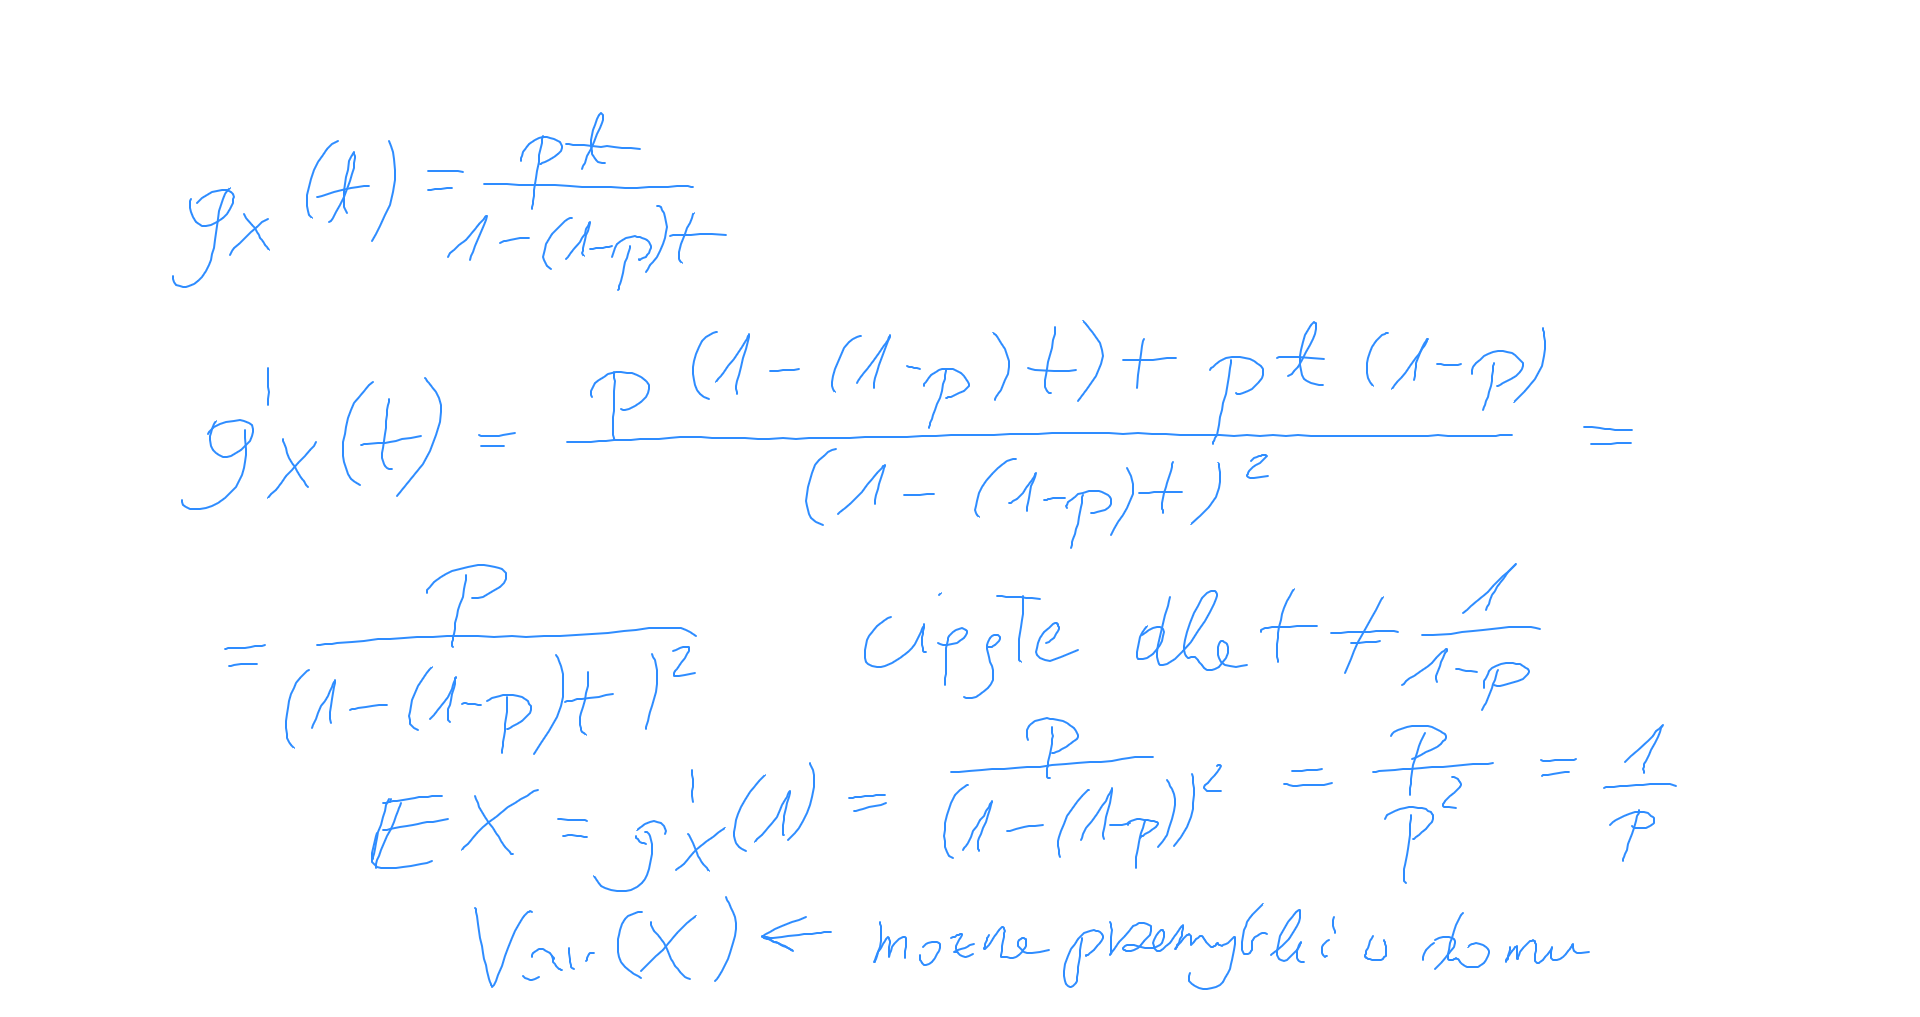 g_X(t) = \frac{pt}{1-(1-p)t}
g'_X(t) = \frac{p(1-(1-p)t)+pt(1-p)}{(1-(1-p)t)^2} =
= \frac{p}{(1-(1-p)t)^2} ciągłe dla t ≠ \frac{1}{1-p}
EX = g'_X(1) = \frac{p}{(1-(1-p))^2} = \frac{p}{p^2} = \frac{1}{p}
Var(X) ← można przemyśleć w domu